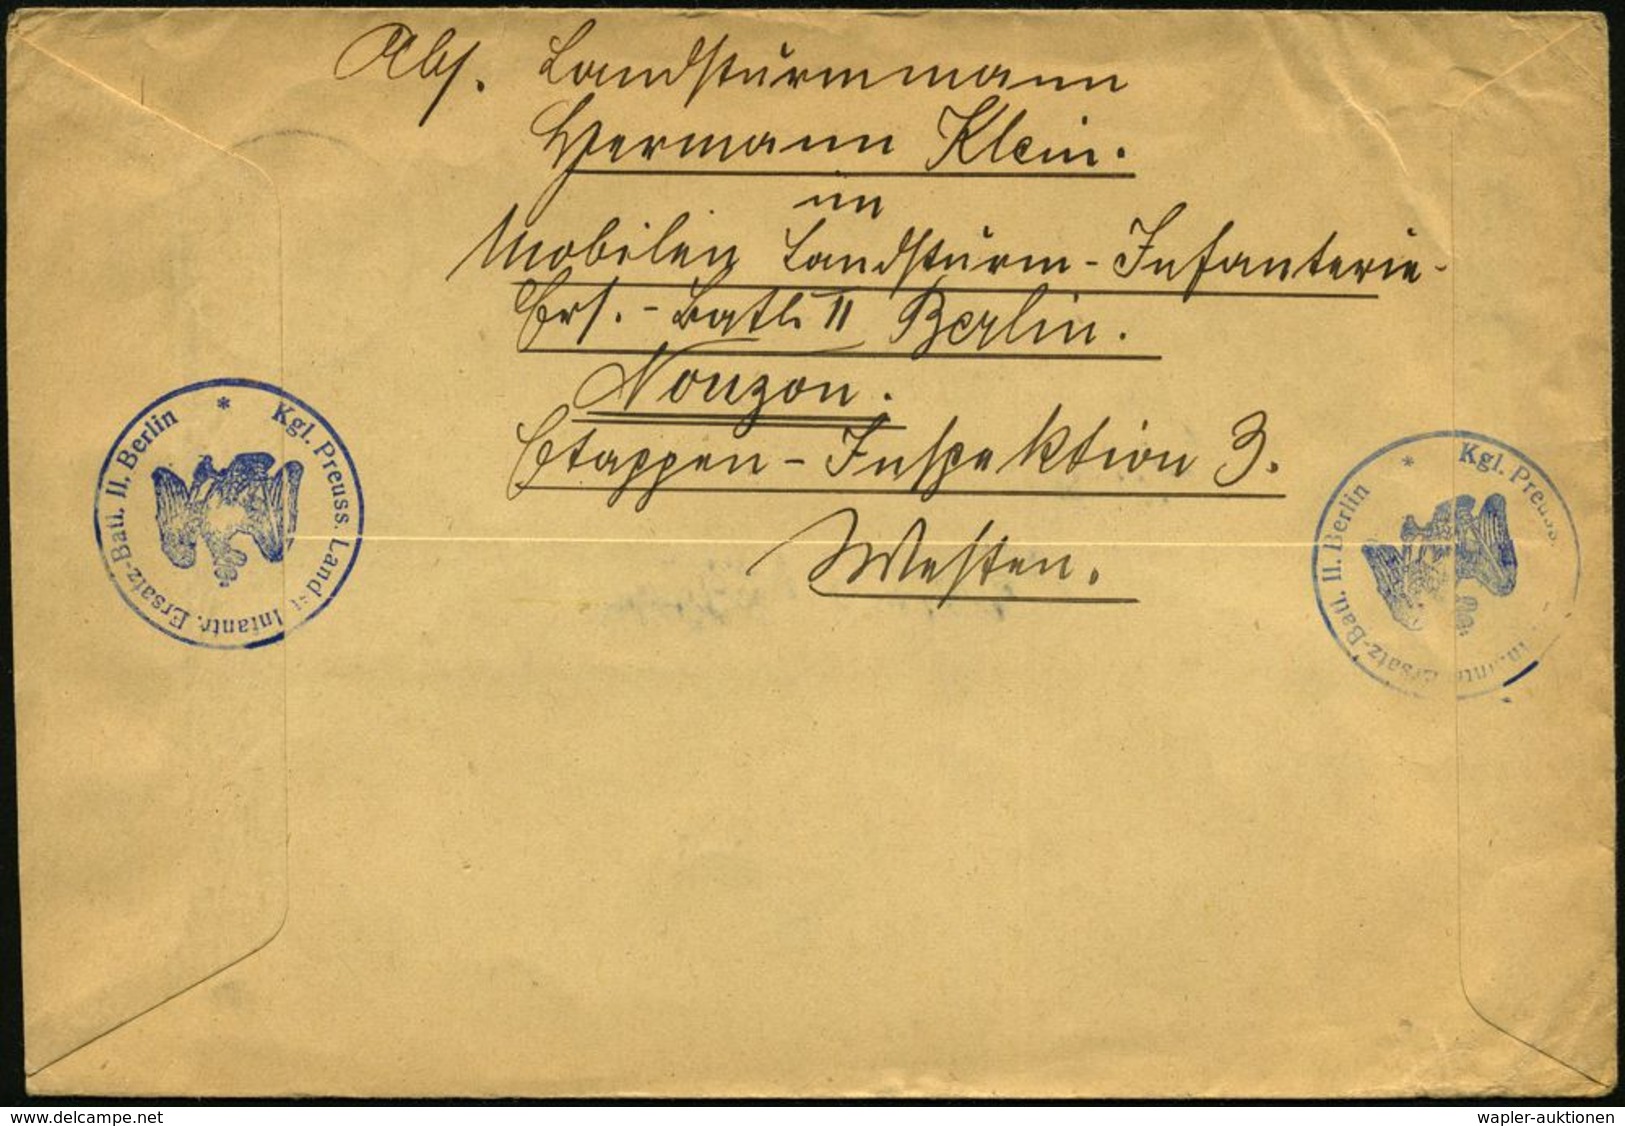 Abs. Landsturmmann
Hermann Klein.
im
Mobilen Landsturm-Infanterie-
Ers.-Batl. II Berlin.
Nouzon.
Etappen-Inspektion 3.
Westen.
* Kgl. Preuss. Landst. Infantr. Ersatz-Batl. II. Berlin
* Kgl. Preuss. Infantr. Ersatz-Batl. II. Berlin
www.delcampe.net
wapler-auktionen